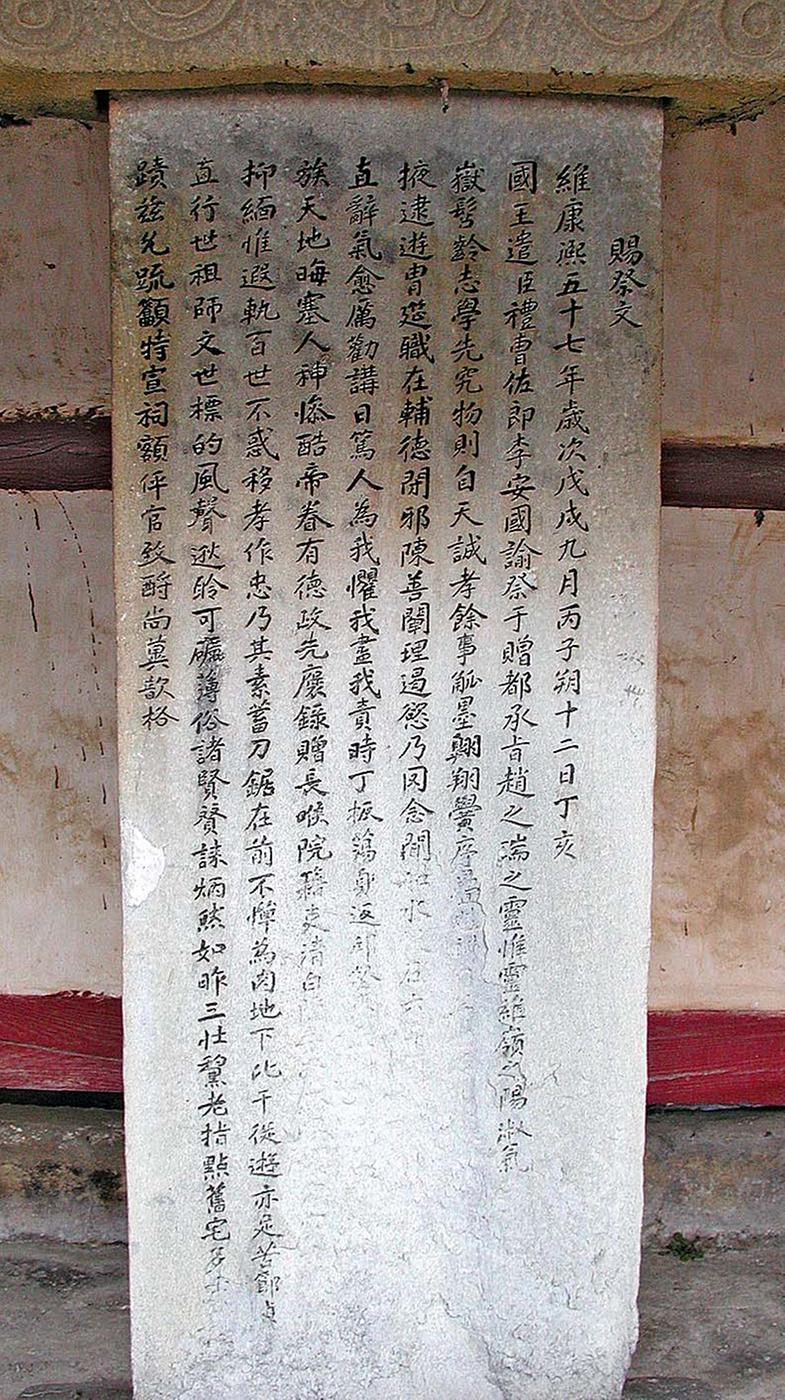 賜祭文
維康熙五十七年歲次戊戌九月丙子朔十二日丁亥
國王遣臣禮曹佐郎李安國諭祭于贈都承旨趙之瑞之靈惟靈維嶺之陽淑氣
嶽髫齡志學先究物則自天誠孝餘事觚墨翺翔黌序
掖逮遊胄筵職在輔德閉邪陳善闡理遏慾乃罔念聞如水
直辭氣愈厲勸講日篤人為我懼我盡我責時丁振蕩身返
族天地晦塞人神慘酷帝眷有德政先褒錄贈長喉院籍吏清白
抑緬惟遐軌百世不惑移孝作忠乃其素蓄刀鋸在前不憚為肉地下比干從遊亦足苦節貞
直行世祖師文世標的風聲逖聆可礪薄俗諸賢賛誄炳然如昨三壯黧老指點舊宅多士
蹟玆允疏籲特宣祠額伻官致酹尚冀歆格